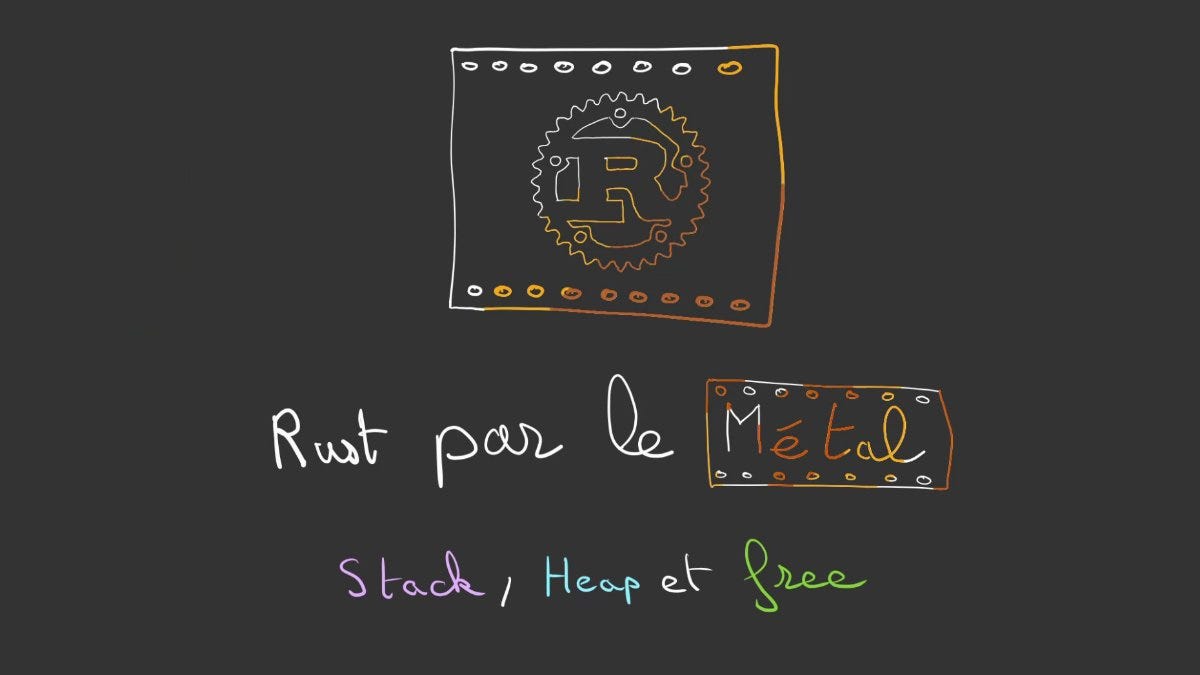 R
Rust par le Métal
Stack, Heap et free